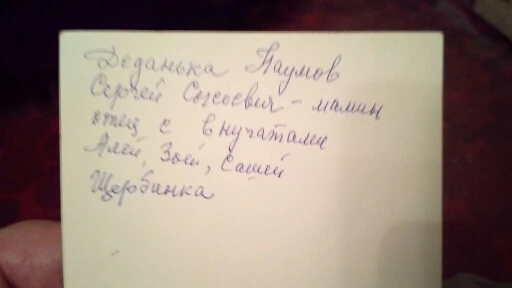 Деданька Наумов
Сергей Сысоевич - мамин
отец с внучатами
Алей, Зоей, Сашей
Щербинка